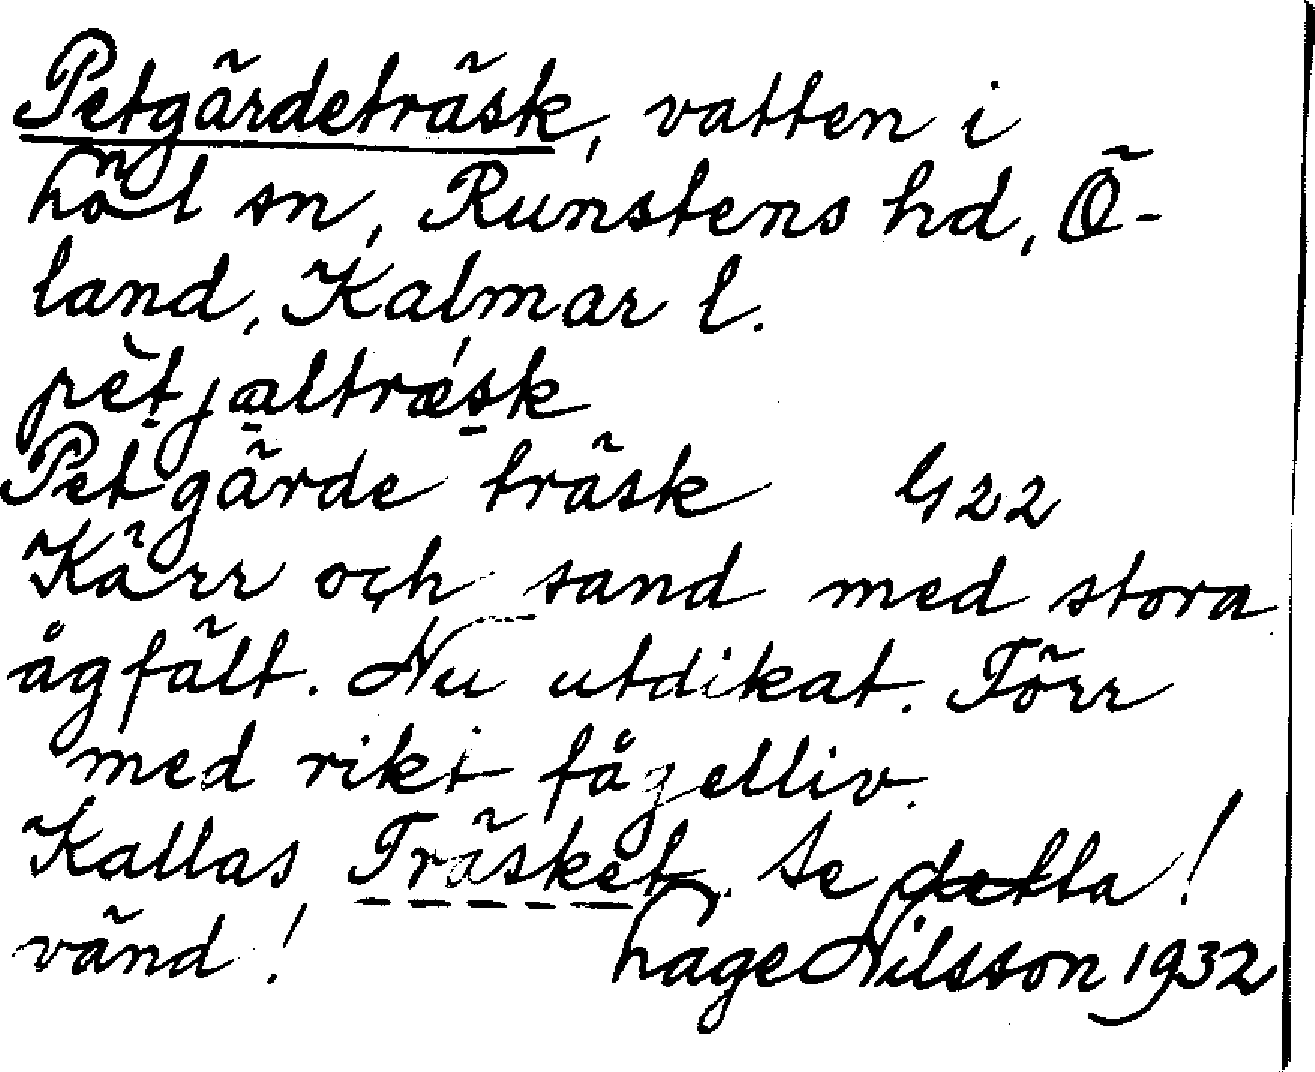 Petgärdeträsk, vatten i
Löt sn, Runstens hd, Ö-
land, Kalmar l.
pètjaltræ´sk
Petgärde träsk G22
Kärr och sand med stora
ågfält. Nu utdikat. Förr
med rikt fågelliv.
Kallas Träsket. Se detta!
vänd! Lage Nilsson 1932